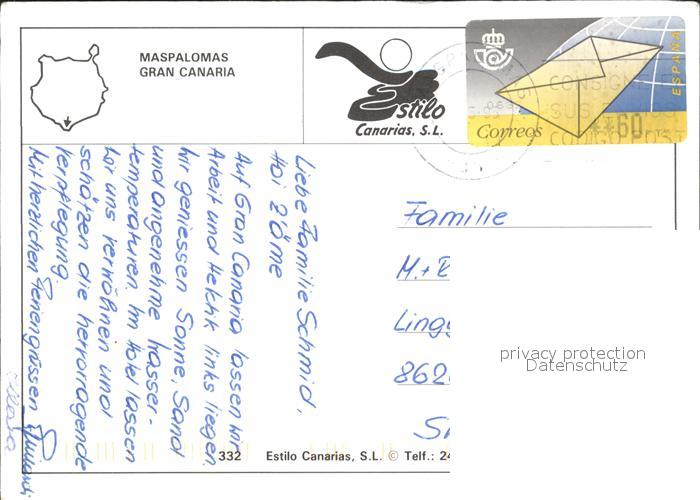 MASPALOMAS
GRAN CANARIA
Estilo
Canarias, S.L.
ESPAÑA
Correos
**60
CONSIGNE
SUS
CODIGO POST
Liebe Familie Schmid,
Hoi Zäme
Auf Gran Canaria lassen wir
Arbeit und Hektik links liegen.
Wir geniessen Sonne, Sand
und angenehme Wasser-
temperaturen. Im Hotel lassen
wir uns verwöhnen und
schätzen die hervorragende
Verpflegung.
Mit herzlichen Feriengrüssen
Familie
M. + E
Lingg
862
privacy protection
Datenschutz
332 Estilo Canarias, S.L. © Telf.: 24